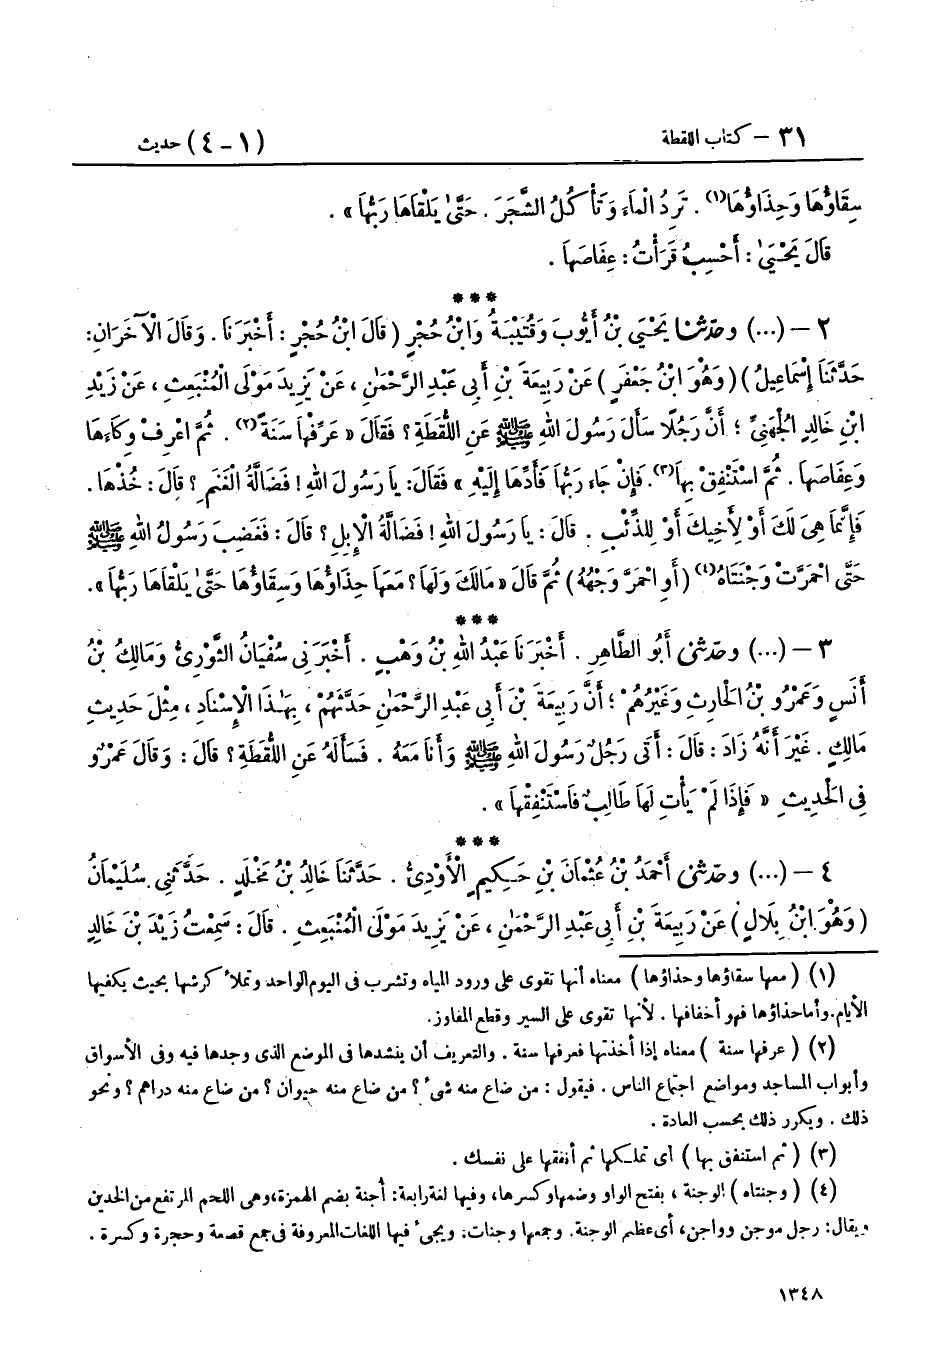 ٣١ – كتاب اللقطة (١ – ٤) حديث
سِقَاؤُهَا وَحِذَاؤُهَا(١). تَرِدُ الْمَاءَ وَتَأْكُلُ الشَّجَرَ. حَتَّىٰ يَلْقَاهَا رَبُّهَا».
قَالَ يَحْيَىٰ: أَحْسِبُ قَرَأْتُ: عِفَاصَهَا.
***
٢ – (...) وحدّثنا يَحْيَىٰ بْنُ أَيُّوبَ وَقُتَيْبَةُ وَابْنُ حُجْرٍ (قَالَ ابْنُ حُجْرٍ: أَخْبَرَنَا. وَقَالَ الْآخَرَانِ:
حَدَّثَنَا إِسْمَاعِيلُ) (وَهُوَ ابْنُ جَعْفَرٍ) عَنْ رَبِيعَةَ بْنِ أَبِي عَبْدِ الرَّحْمَٰنِ، عَنْ يَزِيدَ مَوْلَى الْمُنْبَعِثِ، عَنْ زَيْدِ
ابْنِ خَالِدٍ الْجُهَنِيِّ؛ أَنَّ رَجُلًا سَأَلَ رَسُولَ اللهِ ﷺ عَنِ اللُّقَطَةِ؟ فَقَالَ «عَرِّفْهَا سَنَةً(٢). ثُمَّ اعْرِفْ وِكَاءَهَا
وَعِفَاصَهَا. ثُمَّ اسْتَنْفِقْ بِهَا(٣). فَإِنْ جَاءَ رَبُّهَا فَأَدِّهَا إِلَيْهِ» فَقَالَ: يَا رَسُولَ اللهِ! فَضَالَّةُ الْغَنَمِ؟ قَالَ: خُذْهَا.
فَإِنَّمَا هِيَ لَكَ أَوْ لِأَخِيكَ أَوْ لِلذِّئْبِ. قَالَ: يَا رَسُولَ اللهِ! فَضَالَّةُ الْإِبِلِ؟ قَالَ: فَغَضِبَ رَسُولُ اللهِ ﷺ
حَتَّى احْمَرَّتْ وَجْنَتَاهُ(٤) (أَوِ احْمَرَّ وَجْهُهُ) ثُمَّ قَالَ «مَالَكَ وَلَهَا؟ مَعَهَا حِذَاؤُهَا وَسِقَاؤُهَا حَتَّىٰ يَلْقَاهَا رَبُّهَا».
***
٣ – (...) وحدّثني أَبُو الطَّاهِرِ. أَخْبَرَنَا عَبْدُ اللهِ بْنُ وَهْبٍ. أَخْبَرَنِي سُفْيَانُ الثَّوْرِيُّ وَمَالِكُ بْنُ
أَنَسٍ وَعَمْرُو بْنُ الْحَارِثِ وَغَيْرُهُمْ؛ أَنَّ رَبِيعَةَ بْنَ أَبِي عَبْدِ الرَّحْمَٰنِ حَدَّثَهُمْ، بِهَٰذَا الْإِسْنَادِ، مِثْلَ حَدِيثِ
مَالِكٍ. غَيْرَ أَنَّهُ زَادَ: قَالَ: أَتَى رَجُلٌ رَسُولَ اللهِ ﷺ وَأَنَا مَعَهُ. فَسَأَلَهُ عَنِ اللُّقَطَةِ؟ قَالَ: وَقَالَ عَمْرٌو
فِي الْحَدِيثِ «فَإِذَا لَمْ يَأْتِ لَهَا طَالِبٌ فَاسْتَنْفِقْهَا».
***
٤ – (...) وحدّثني أَحْمَدُ بْنُ عُثْمَانَ بْنِ حَكِيمٍ الْأَوْدِيُّ. حَدَّثَنَا خَالِدُ بْنُ مَخْلَدٍ. حَدَّثَنِي سُلَيْمَانُ
(وَهُوَ ابْنُ بِلَالٍ) عَنْ رَبِيعَةَ بْنِ أَبِي عَبْدِ الرَّحْمَٰنِ، عَنْ يَزِيدَ مَوْلَى الْمُنْبَعِثِ. قَالَ: سَمِعْتُ زَيْدَ بْنَ خَالِدٍ
(١) (معها سقاؤها وحذاؤها) معناه أنها تقوى على ورود المياه وتشرب في اليوم الواحد وتملأ كرشها بحيث يكفيها
الأيام. وأما حذاؤها فهو أخفافها. لأنها تقوى على السير وقطع المفاوز.
(٢) (عرفها سنة) معناه إذا أخذتها فعرفها سنة. والتعريف أن ينشدها في الموضع الذي وجدها فيه وفي الأسواق
وأبواب المساجد ومواضع اجتماع الناس. فيقول: من ضاع منه شيء؟ من ضاع منه حيوان؟ من ضاع منه دراهم؟ ونحو
ذلك. ويكرر ذلك بحسب العادة.
(٣) (ثم استنفق بها) أي تملكها ثم أنفقها على نفسك.
(٤) (وجنتاه) الوجنة، بفتح الواو وضمها وكسرها، وفيها لغة رابعة: أجنة بضم الهمزة، وهي اللحم المرتفع من الخدين
ويقال: رجل موجن وواجن، أي عظيم الوجنة. وجمعها وجنات. ويجيء فيها اللغات المعروفة في جمع قصعة وحجرة وكسرة.
١٣٤٨